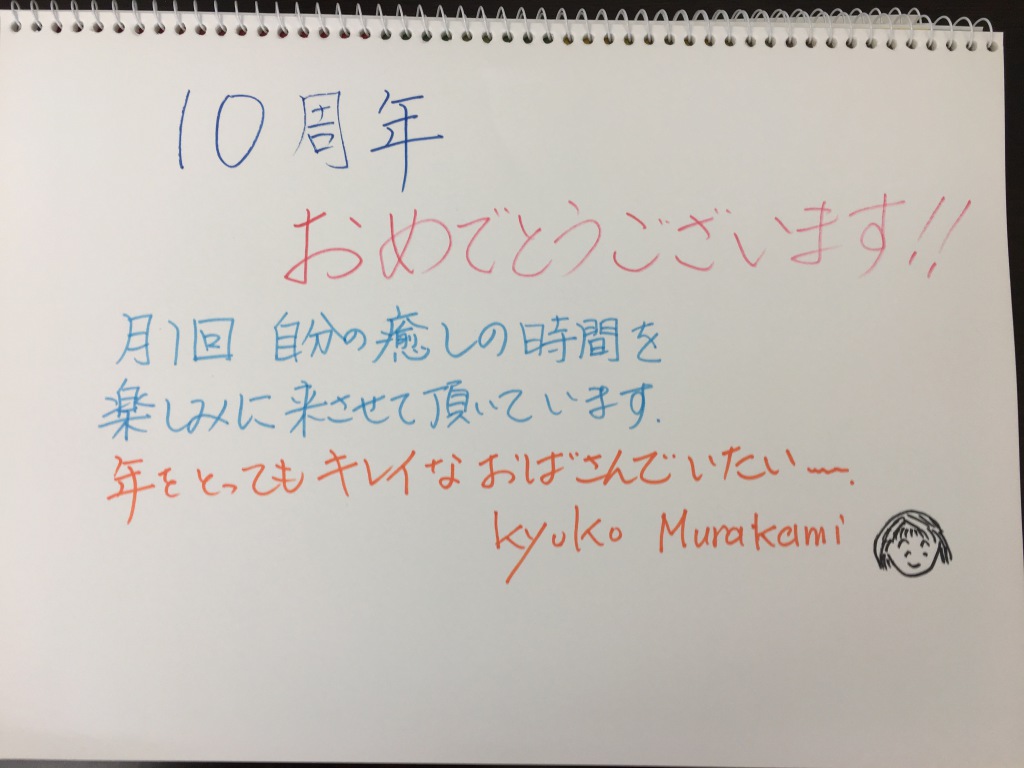 10周年
おめでとうございます!!
月1回 自分の癒しの時間を
楽しみに来させて頂いています.
年をとってもキレイなおばさんでいたい〜.
Kyoko Murakami